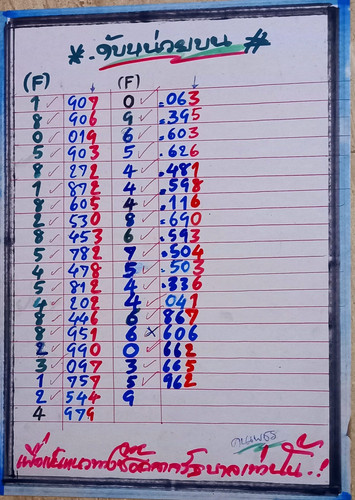 * . ดับหน่วยบน #
(F) (F)
1 ✓ 907 0 ✓ .063
8 ✓ 906 9 ✓ .395
0 ✓ 019 6 ✓ .603
5 ✓ 903 5 ✓ .626
8 ✓ 272 4 ✓ .481
1 ✓ 872 4 ✓ .598
8 ✓ 605 4 ✓ .116
2 ✓ 530 8 ✓ .690
8 ✓ 453 6 ✓ .593
5 ✓ 782 7 ✓ .504
4 ✓ 478 5 ✓ .503
5 ✓ 812 4 ✓ .336
4 ✓ 202 4 ✓ 041
8 ✓ 446 6 ✓ 867
8 ✓ 951 6 × 606
2 ✓ 990 0 ✓ 662
3 ✓ 097 3 ✓ 665
1 ✓ 757 5 ✓ 962
2 ✓ 544 9
4 979
เพื่อเป็นแนวทางซื้อสลากรัฐบาลเท่านั้น.!